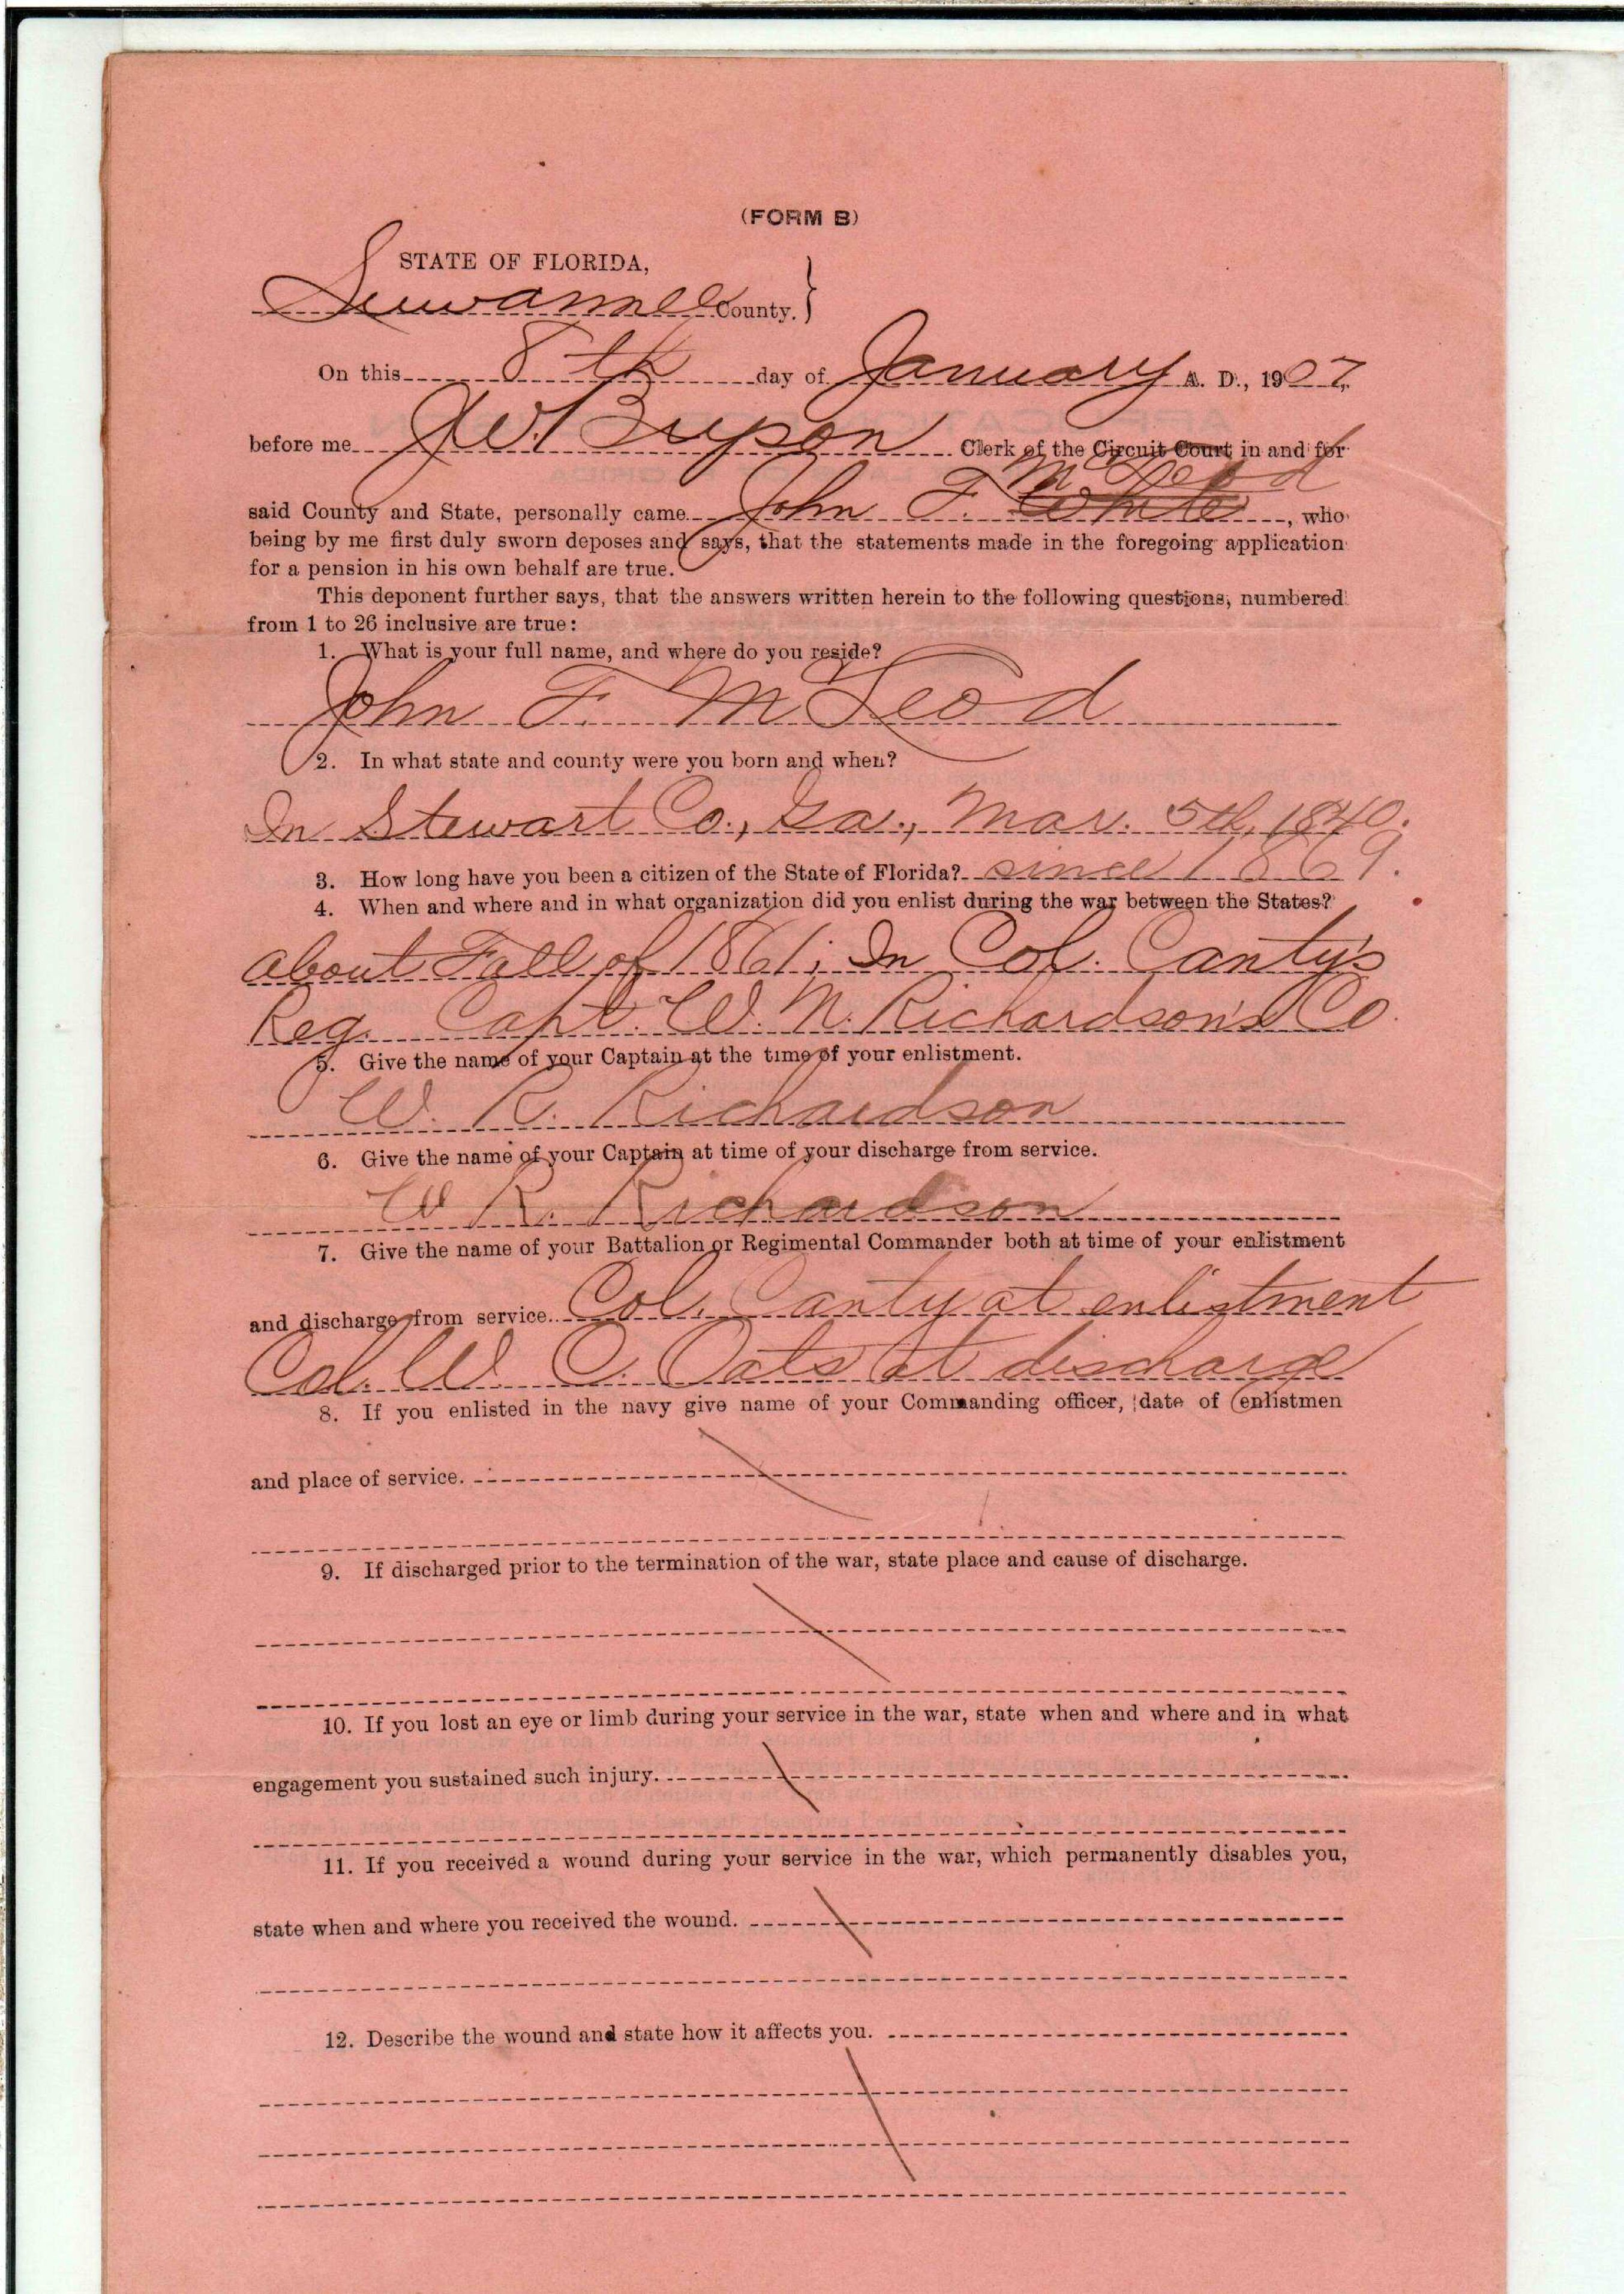 (FORM B)
STATE OF FLORIDA,
Suwannee County.
On this 8th day of January A. D., 1907,
before me J.W. Bryson Clerk of the Circuit Court in and for
McLeod
said County and State, personally came John F. White, who
being by me first duly sworn deposes and says, that the statements made in the foregoing application
for a pension in his own behalf are true.
This deponent further says, that the answers written herein to the following questions, numbered
from 1 to 26 inclusive are true:
1. What is your full name, and where do you reside?
John F. McLeod
2. In what state and county were you born and when?
In Stewart Co., Ga., Mar. 5th, 1840.
3. How long have you been a citizen of the State of Florida? since 1869.
4. When and where and in what organization did you enlist during the war between the States?
about Fall of 1861; In Col. Canty's
Reg. Capt. W. N. Richardson's Co.
5. Give the name of your Captain at the time of your enlistment.
W. R. Richardson
6. Give the name of your Captain at time of your discharge from service.
W R. Richardson
7. Give the name of your Battalion or Regimental Commander both at time of your enlistment
and discharge from service. Col. Canty at enlistment
Col. W. C. Oats at discharge
8. If you enlisted in the navy give name of your Commanding officer, date of enlistmen
and place of service.
9. If discharged prior to the termination of the war, state place and cause of discharge.
10. If you lost an eye or limb during your service in the war, state when and where and in what
engagement you sustained such injury.
11. If you received a wound during your service in the war, which permanently disables you,
state when and where you received the wound.
12. Describe the wound and state how it affects you.